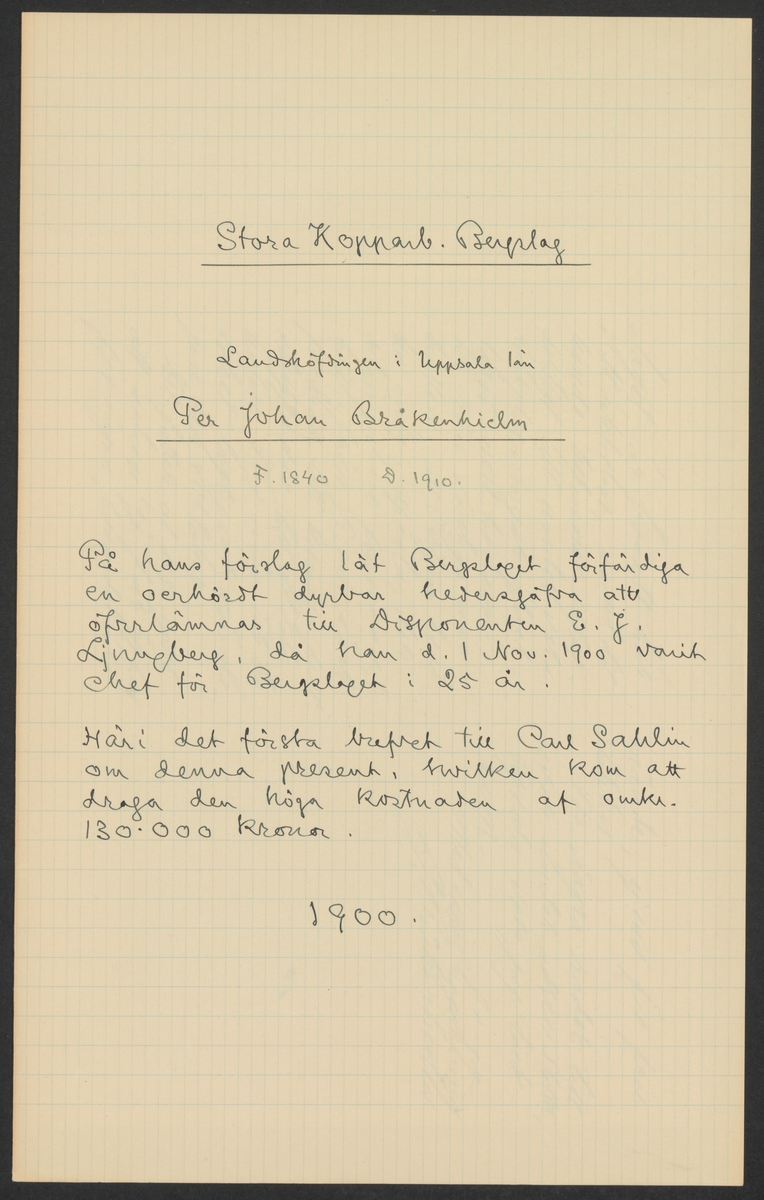 Stora Kopparb. Bergslag
Landshöfdingen i Uppsala län
Per Johan Bråkenhielm
F. 1840 D. 1910.
På hans förslag lät Bergslaget förfärdiga
en oerhördt dyrbar hedersgåfva att
öfverlämnas till Disponenten E. J.
Ljungberg, då han d. 1 Nov. 1900 varit
chef för Bergslaget i 25 år.
Häri det första brefvet till Carl Sahlin
om denna present, hvilken kom att
draga den höga kostnaden af omkr.
130.000 kronor.
1900.